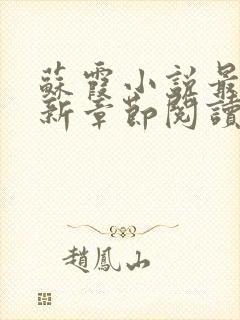 蘇霞小說最
新章節閱讀
趙鳳山